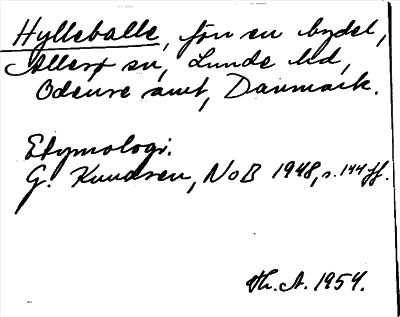 Hylleballe, fvn en bydel,
Allesø sn, Lunde hd,
Odense amt, Danmark.
Etymologi.
G. Knudsen, NoB 1948, s. 144 ff.
Th. A. 1954.